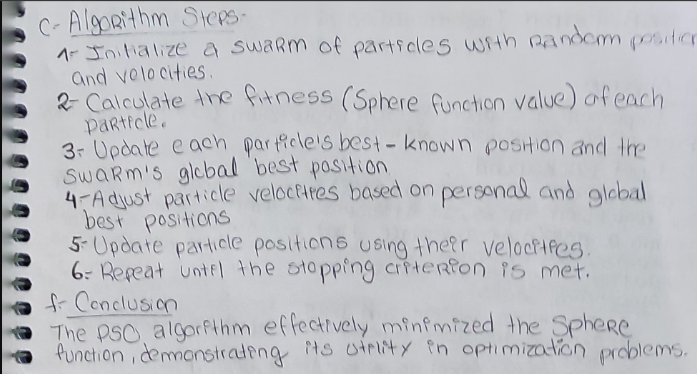 C- Algorithm Steps-
1- Initialize a swarm of particles with random position
and velocities.
2- Calculate the fitness (Sphere function value) of each
particle.
3- Update each particle's best-known position and the
swarm's global best position
4- Adjust particle velocities based on personal and global
best positions
5- Update particle positions using their velocities.
6- Repeat until the stopping criterion is met.
f- Conclusion
The PSO algorithm effectively minimized the Sphere
function, demonstrating its utility in optimization problems.